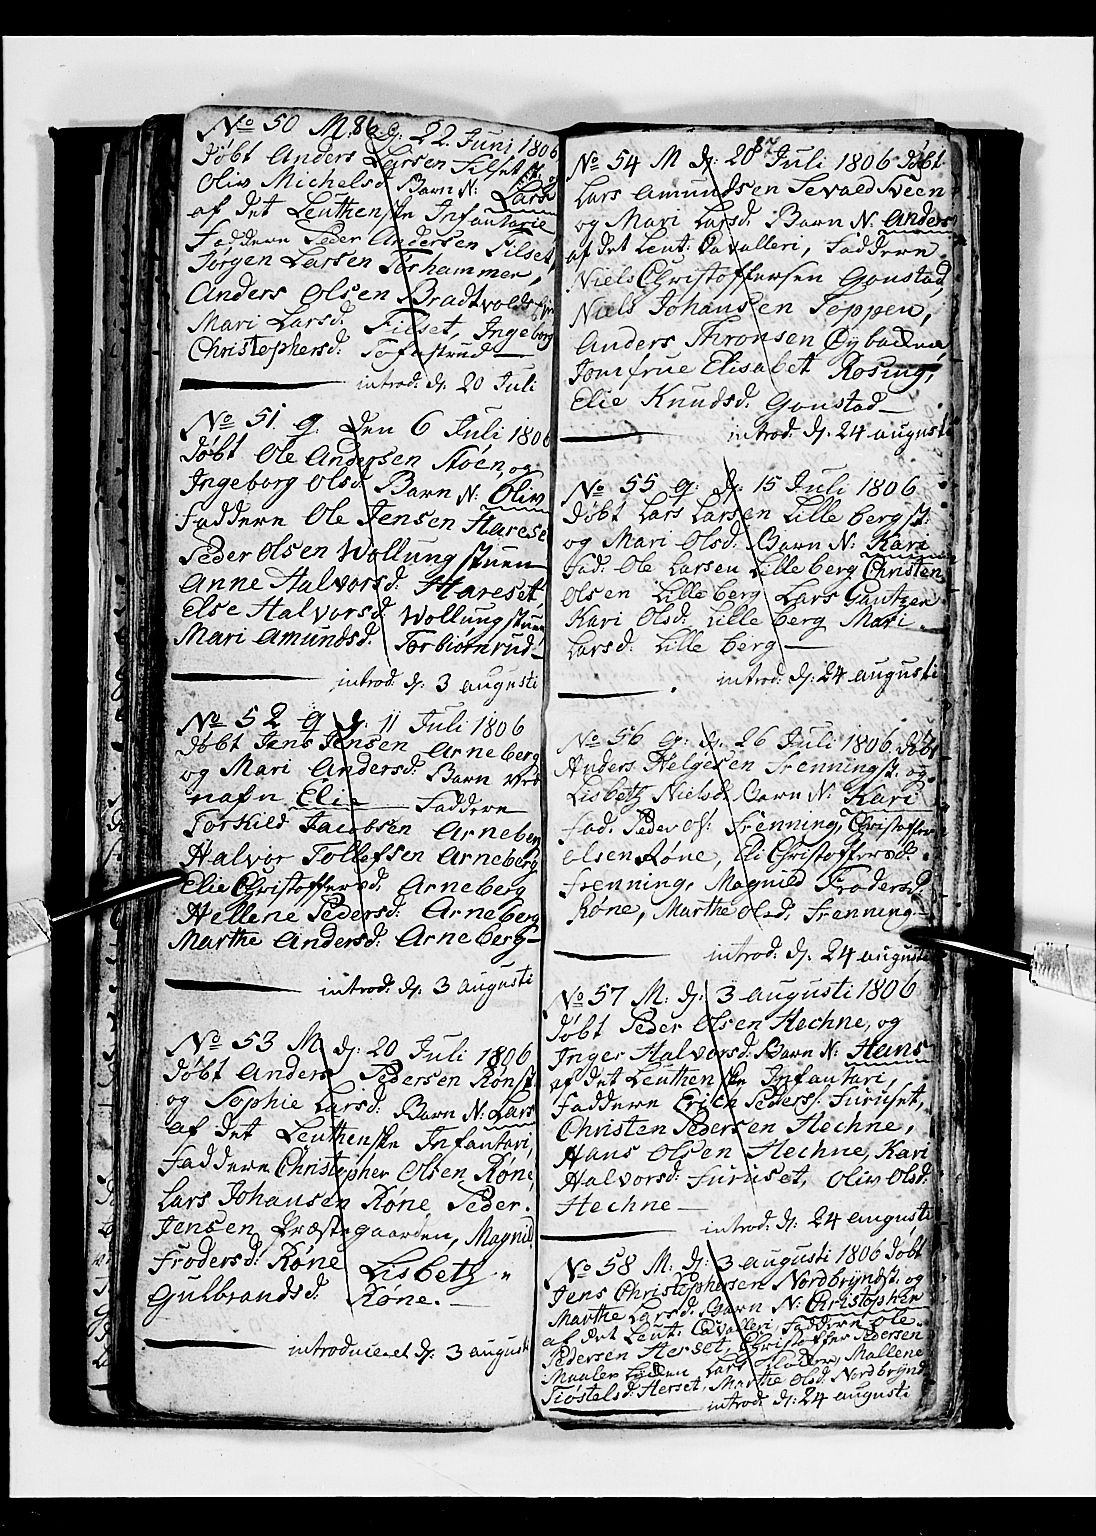 86
No 50 M. d: 22 Juni 1806
døbt Anders Larsen Filset st: og
Oliv Michelsd Barn N: Lars
af det Leuthenske Infantarie
Faddere Peder Andersen Filset,
Jørgen Larsen Torhammer,
Anders Olsen Bradtvolds
Mari Larsd. Filset, Ingeborg
Christophersd: Tofastrud
introd: d: 20 Juli
No 51. q. den 6 Juli 1806
døbt Ole Andersen Moen, og
Ingeborg Olsd. Barn N: Oliv
Faddere Ole Jensen Hareset
Peder Olsen Wollungstuen
Anne Halvorsd: Hareset,
Else Halvorsd: Wollungstuen
Mari Amundsd: Torbiørnrud
introd: d: 3 augusti
No 52 q d: 11 Juli 1806
døbt Jens Jensen Arneberg
og Mari Andersd: Barn ved
nafn Elie Faddere
Torkild Jacobsen Arneberg
Halvor Tollefsen Arneberg
Elie Christoffersd: Arneberg
Hellene Pedersd: Arneberg
Marthe Andersd: Arneberg
introd: d: 3 augusti
No 53 M. d: 20 Juli 1806
døbt Anders Pedersen Rønst:
og Sophie Larsd: Barn N: Lars
af det Leuthenske Infantari,
Faddere Christopher Olsen Røne,
Lars Johansen Røne, Peder
Jensen Præstegaarden, Magnild
Frodersd: Røne Lisbeth
Gulbrandsd: Røne.
introduceret d: 3 augusti
87
No 54 M d: 20 Juli 1806 døbt
Lars Amundsen Sevald Sveen
og Mari Larsd: Barn N: Anders
af det Leut: Cavalleri, Faddere
Niels Christoffersen Gonstad,
Niels Johansen Toppen,
Anders Thronsen Øybakken,
Jomfrue Elisabet Rosing,
Elie Knudsd: Gonstad
introd: d: 24 augusti
No 55 q. d: 15 Juli 1806
døbt Lars Larsen Lilleberg st:
og Mari Olsd: Barn N: Kari
Fad: Ole Larsen Lilleberg Christen
Olsen Lilleberg Lars Gautzen
Kari Olsd: Lilleberg Mari
Larsd: Lilleberg
introd: d: 24 augusti
No 56 q: d: 26 Juli 1806 døbt
Anders Helgesen Frenningst: og
Lisbeth Nielsd: Barn N: Kari
Fad: Peder Ols: Frenning, Christoffer
Olsen Røne, Eli Christoffersd:
Frenning, Magnild Frodersd:
Røne, Marthe Olsd: Frenning
introd: d: 24 augusti
No 57 M: d: 3 augusti 1806
døbt Peder Olsen Hechne, og
Inger Halvorsd: Barn N: Hans
af det Leuthenske Infantari,
Faddere Erich Peders: Furuset,
Christen Pedersen Hechne,
Hans Olsen Hechne, Kari
Halvorsd: Furuset, Oliv Olsd:
Hechne
introd: d: 24 augusti
No 58 M: d: 3 augusti 1806 døbt
Jens Christophersen Nordbryndst: og
Marthe Larsd: Barn N: Christopher
af det Leut: Cavalleri, Faddere Ole
Pedersen Herset, Christoffer Pedersen
Lars Mallene
Tiostelsd: Herset, Marthe Olsd: Nordbrynd
introd: d: 24 augusti